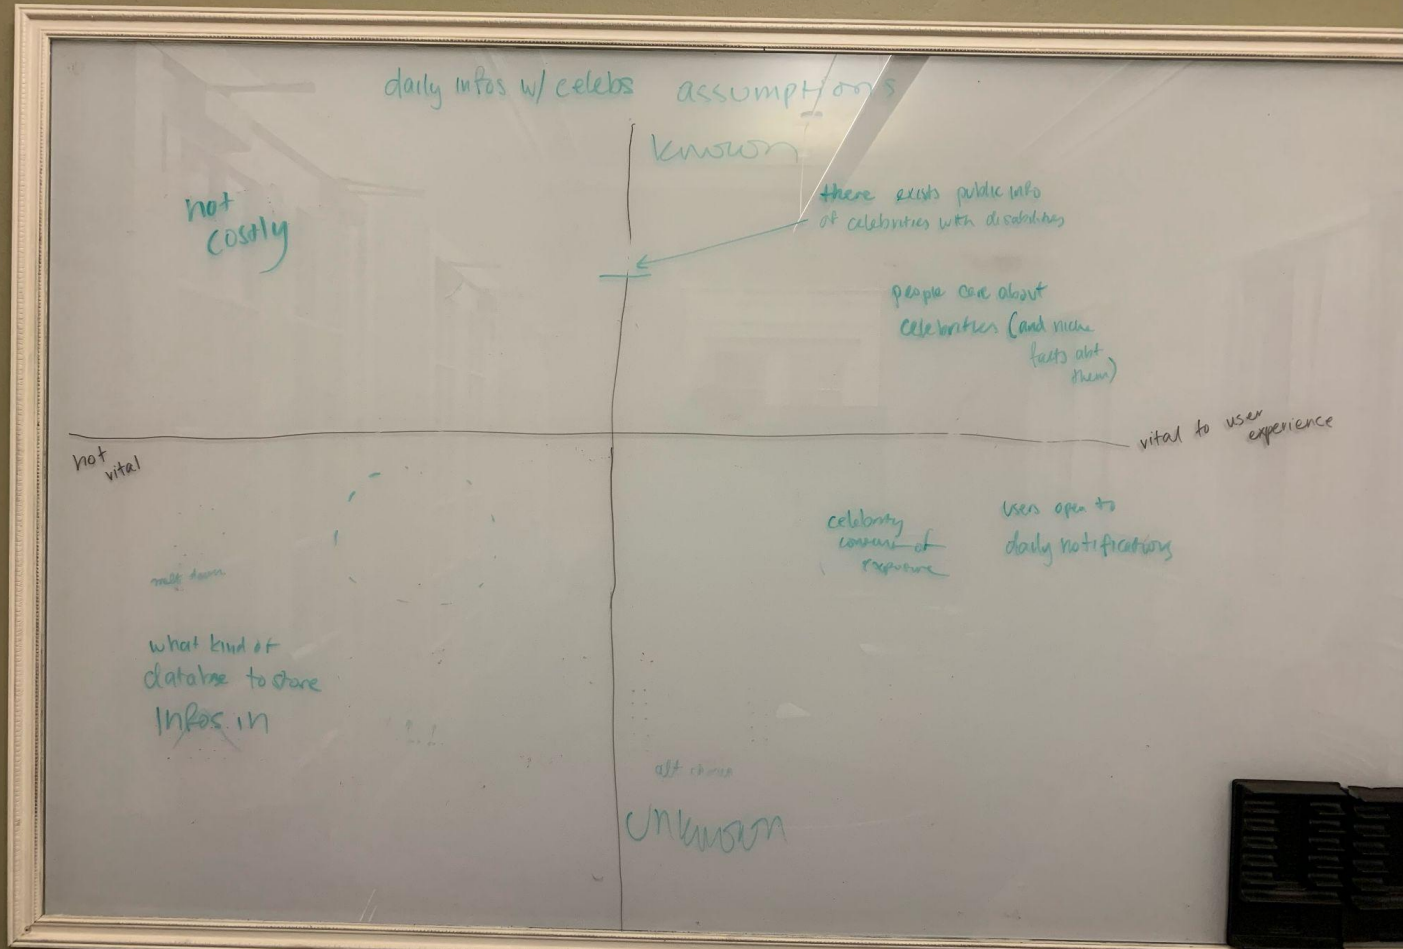 daily infos w/ celebs assumptions
known
not
costly
there exists public info
of celebrities with disabilities
people care about
celebrities (and niche
facts abt
them)
not
vital
vital to user
experience
celebrity
consent of
exposure
users open to
daily notifications
what kind of
database to share
infos in
alt
unknown